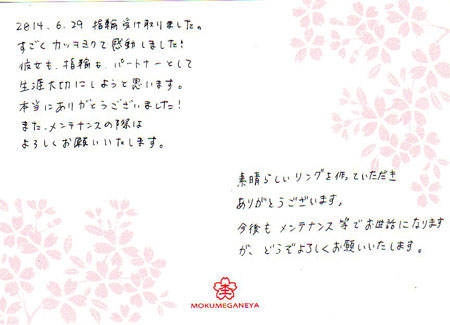 2014.6.29 指輪受け取りました。
すごくカッコヨクて感動しました!
彼女も、指輪も、パートナーとして
生涯大切にしようと思います。
本当にありがとうございました!
また、メンテナンスの際は
よろしくお願いいたします。
素晴らしいリングを作っていただき
ありがとうございます。
今後もメンテナンス等でお世話になります
が、どうぞよろしくお願いいたします。
MOKUMEGANEYA